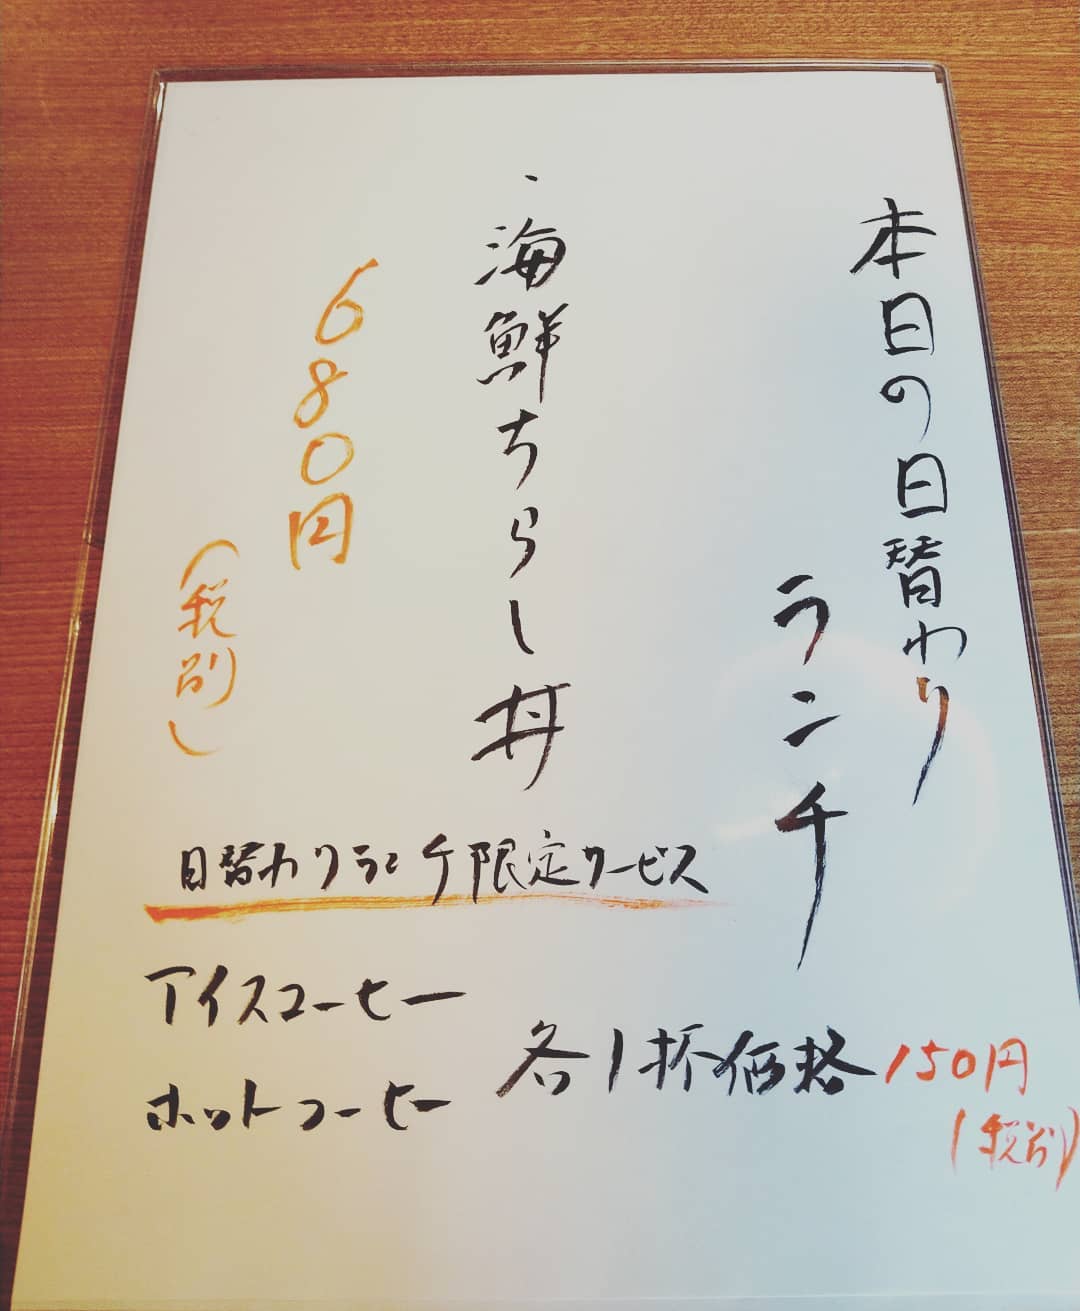 本日の日替わり
ランチ
・海鮮ちらし丼
680円
(税別)
日替わりランチ限定サービス
アイスコーヒー
ホットコーヒー
各1杯価格150円
(税別)